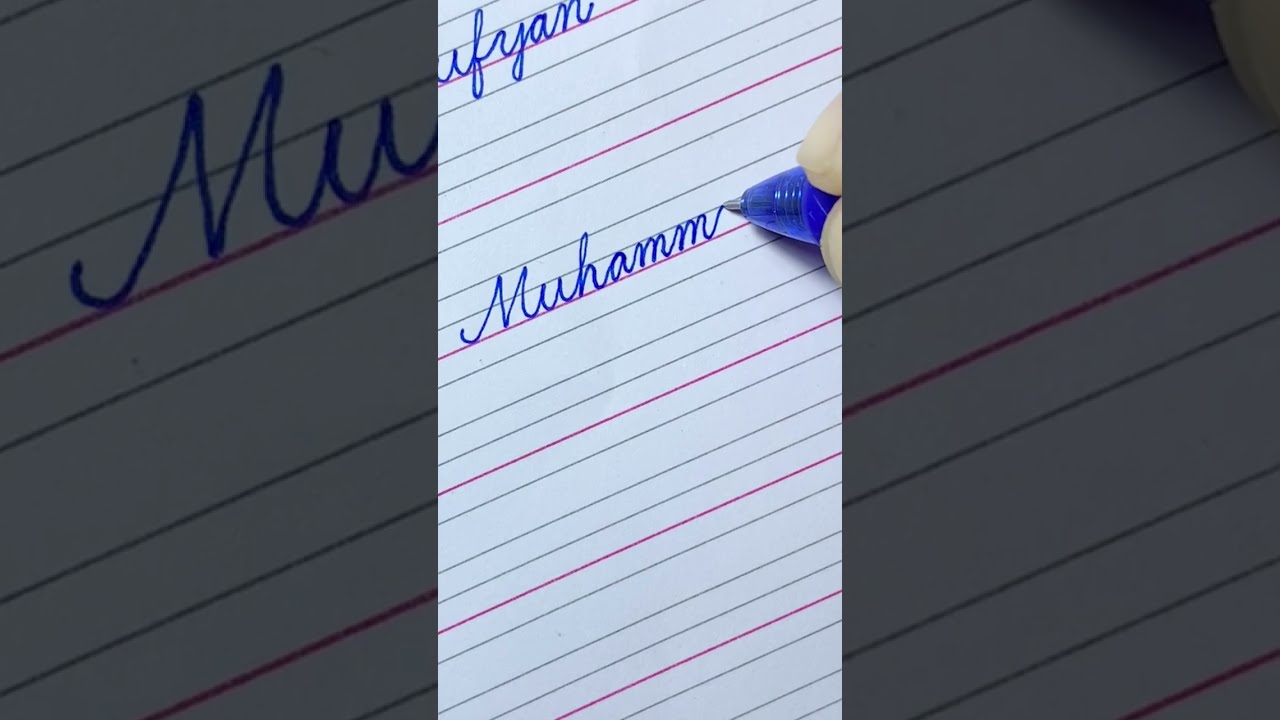 ufyan
Muhamm